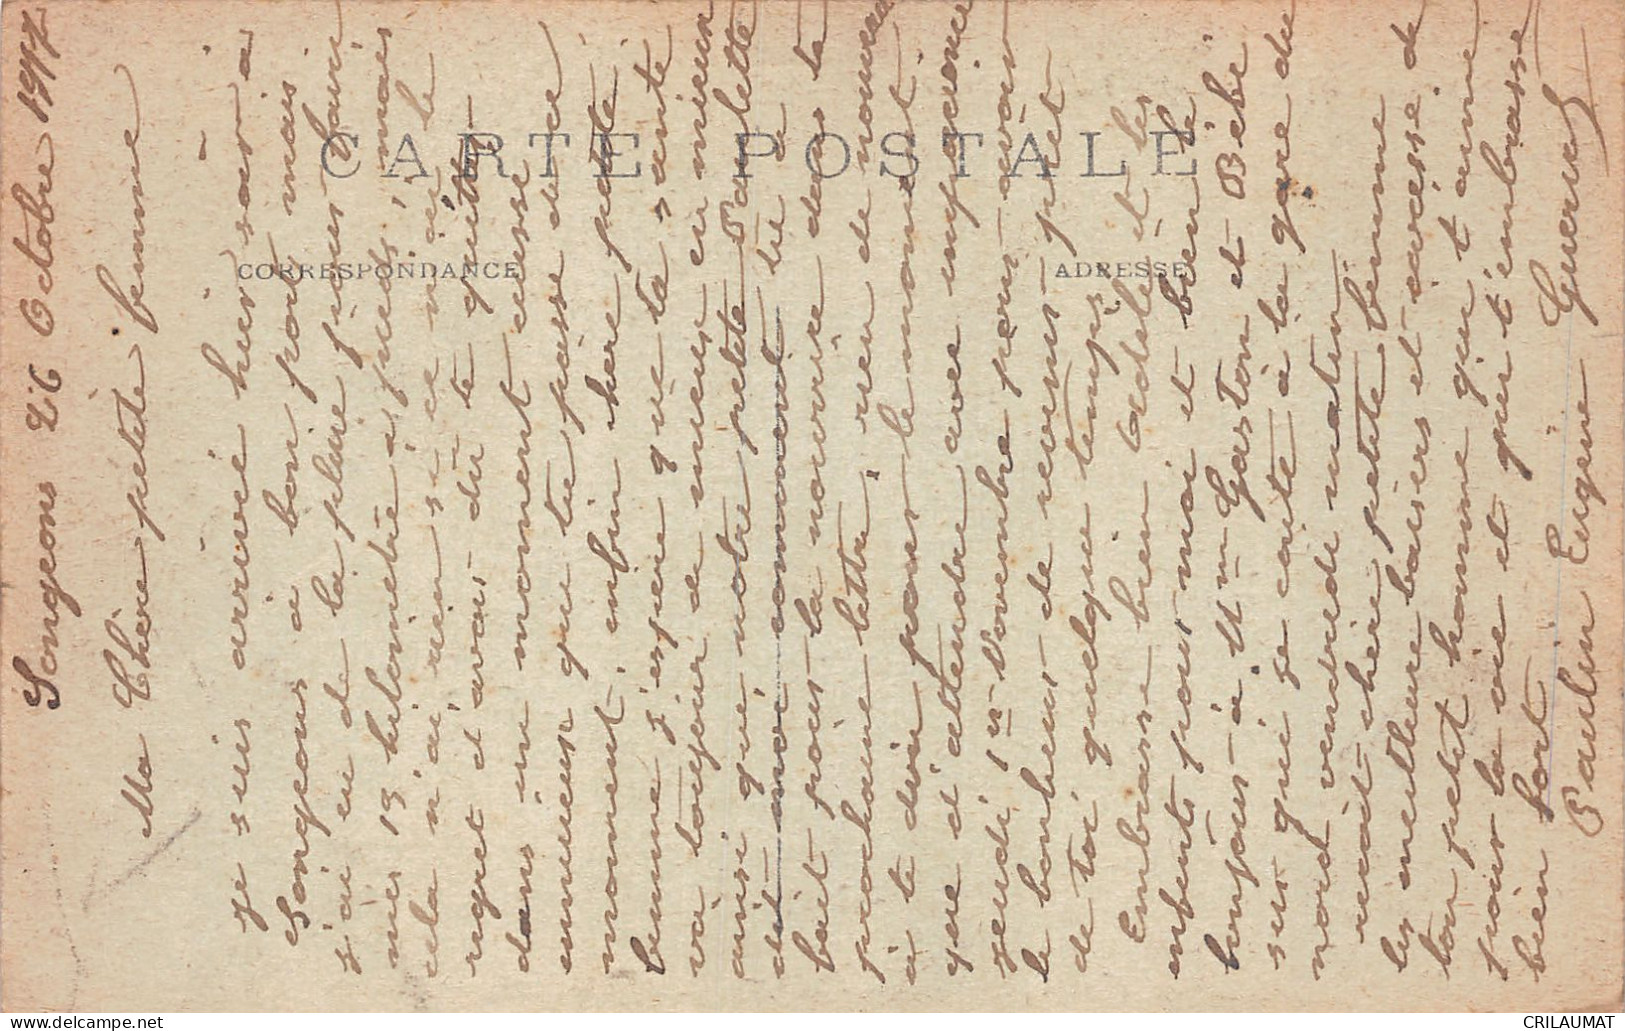 Songeons 26 Octobre 1917
Ma Chère petite femme
je suis arrivé hier soir à
Songeons à bon port mais
j'ai eu de la pluie pour faire
mes 19 kilomètre à pieds, mais
cela n'ai rien se ce n'ai le
regret d'avoir dû te quitter
dans un moment cesse
ennuieux que tu passe de ce
moment, enfin chere petite
femme j'espère que ta santé
va toujour de mieux en mieux
ainsi que notre petite Paulette
dit moi comment tu a
fait pour la nourrire dans ta
prochaine lettre, rien de nouveau
à te dire pour le moment.
que d'attendre avec impacience
jeudi 1er Novembre pour avoir
le bonheur de revenir près
de toi quelque temps.
Embrasse bien Adèle et les
enfants pour moi et bien le
bonjour à Mm Gaston et Bébé
sur que je conte à la gare du
nord vendredi matin
recoit chère petite femme
les meilleure baisers et caresse de
ton petit homme qui t'aime
pour la vie et qui t'embrasse
bien fort
Paulin Eugène Guerrey
CARTE POSTALE
CORRESPONDANCE
ADRESSE
CRILAUMAT